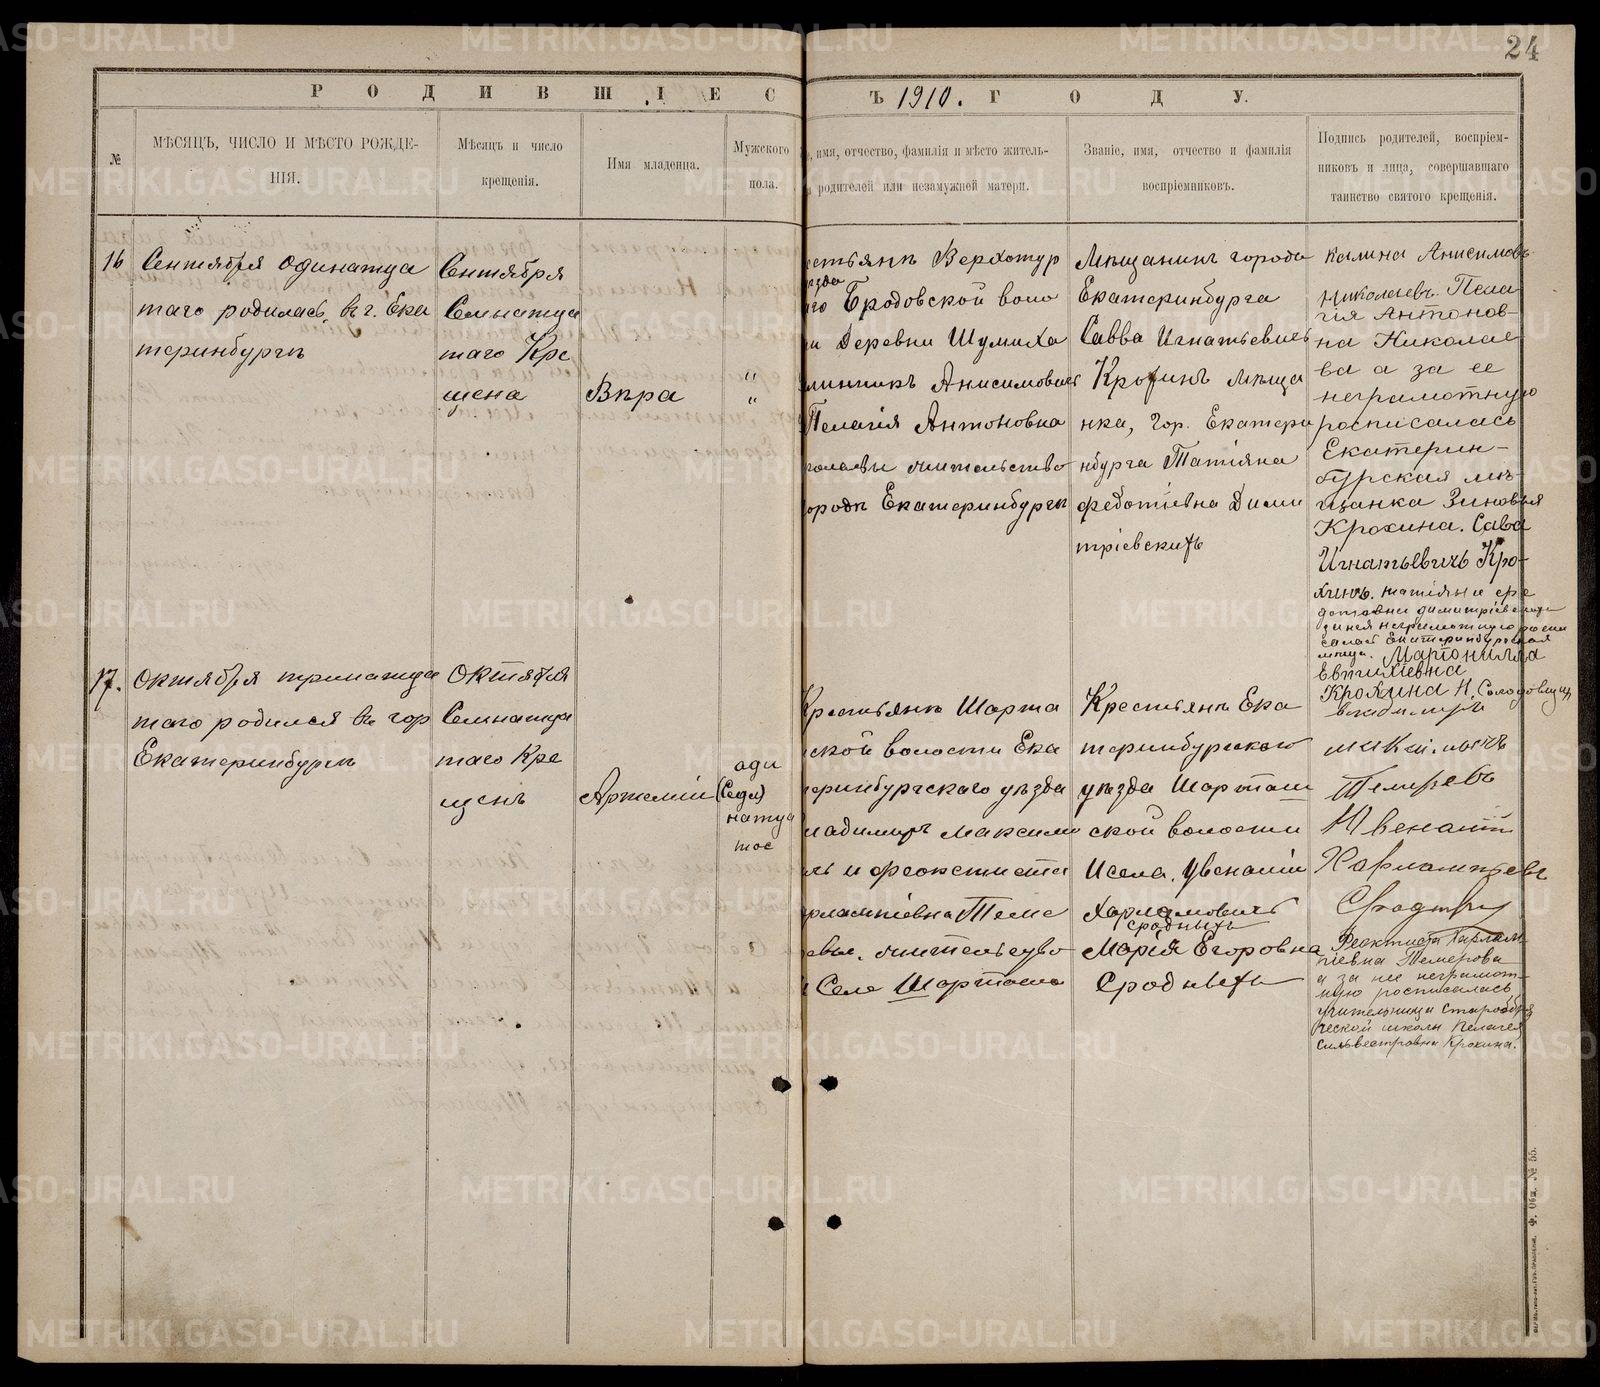 24
РОДИВШІЕС
Ъ 1910. ГОДУ.
№
МѢСЯЦЪ, ЧИСЛО И МѢСТО РОЖДЕ-
НІЯ.
Мѣсяцъ и число
крещенія.
Имя младенца.
Мужского
пола.
, имя, отчество, фамилія и мѣсто житель-
родителей или незамужней матери.
Званіе, имя, отчество и фамилія
воспріемниковъ.
Подпись родителей, воспріем-
никовъ и лица, совершавшаго
таинство святого крещенія.
16
Сентября одинатца
таго родилась, въ г. Ека
теринбургѣ
Сентября
Семнатца
таго Кре
щена
Вѣра
"
"
стьянъ Верхотур
Бродовской воло
и Деревни Шумиха
Анисимовичъ
Пелагія Антоновна
жительство
городѣ Екатеринбургѣ
Мѣщанинъ города
Екатеринбурга
Савва Игнатьевичъ
Крохинъ мѣща
нка, Гор. Екатери
нбурга Татіяна
федотіевна Дими
тріевскихъ
Калина Анисимовъ
Николаевъ. Пела
гія Антонов-
на Николае
ва а за ее
неграмотную
росписалась
Екатерин-
бурская мѣ-
щанка Зиновья
Крохина. Сава
Игнатьевичъ Кро-
хинъ. татіяны фе
дотовны димитріевскихъ
Екатеринбургская
Мартонилла
Евтихіевна
Крохина
17.
Октября тринатца
таго родился въ гор
Екатеринбургѣ
Октября
Семнатца
таго Кре
щенъ
Артемій
оди
(Седм)
натца
тое
Крестьянъ Шарта
ской волости Ека
теринбургскаго уѣзда
ладимиръ Максими
чъ и феоктиста
рлампіевна Теме
ревы. жительство
Село Шарташъ
Крестьянъ Ека
теринбургскаго
уѣзда Шарташ
ской волости
Исела. Увеналій
Харламовичъ
сродныхъ
Марія Егоровна
Сродныхъ
Владимиръ
Темеревъ
Ювеналій
Харлампіевъ
Сродных
Феоктиста Харлам-
піевна Темерова
а за нее неграмот-
ную росписалась
учительница старообря
ческой школы Пелагея
Сильвестровна Крохина.
Ф. Общ. № 55.
METRIKI.GASO-URAL.RU